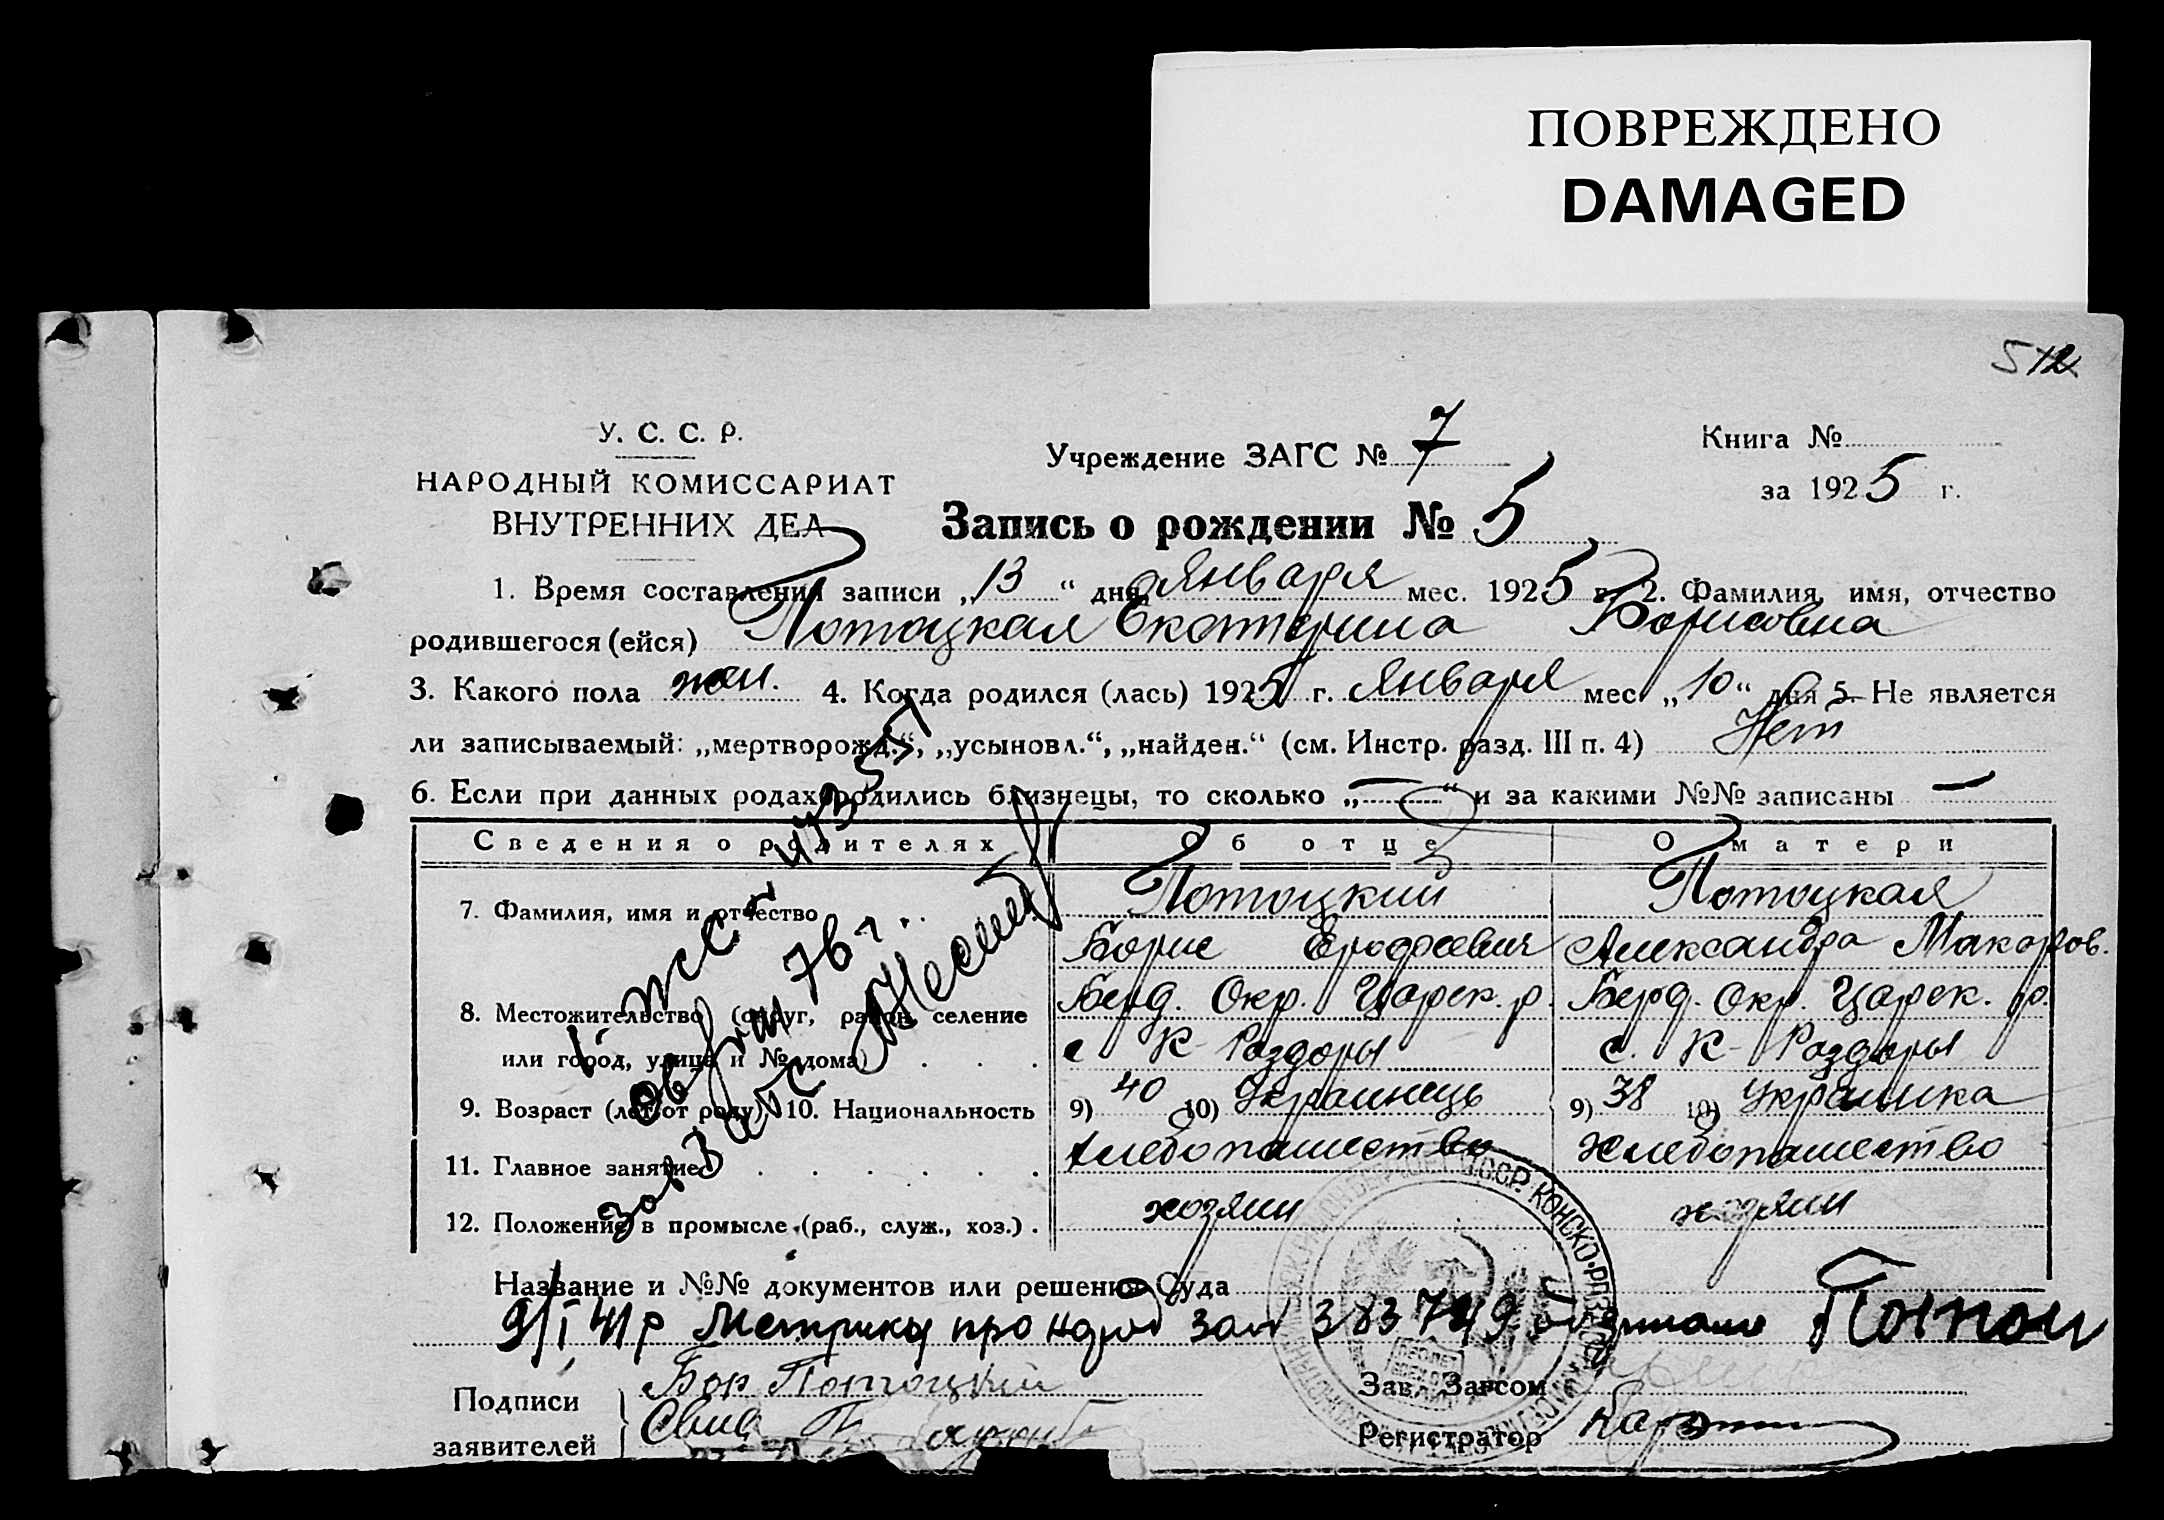 ПОВРЕЖДЕНО
DAMAGED
512
У. С. С. Р.
НАРОДНЫЙ КОМИССАРИАТ
ВНУТРЕННИХ ДЕЛ
Учреждение ЗАГС № 7
Книга №
за 1925 г.
Запись о рождении № 5
1. Время составления записи „13“ дня, Января мес. 1925 г. 2. Фамилия, имя, отчество
родившегося (ейся) Потоцкая Екатерина Борисовна
3. Какого пола жен. 4. Когда родился (лась) 1925 г. Января мес. „10“ дня 5. Не является
ли записываемый: „мертворожд.“, „усыновл.“, „найден.“ (см. Инстр. разд. III п. 4) Нет
6. Если при данных родах родились близнецы, то сколько „—“ и за какими №№ записаны —
Сведения о родителях Об отце О матери
7. Фамилия, имя и отчество Потоцкий Потоцкая
Борис Ерофеевич Александра Макаров.
8. Местожительство (округ, район, селение Берд. Окр. Царек. р. Берд. Окр. Царек. р.
или город, улица и № дома) с К-Раздоры с. К-Раздоры
9. Возраст (лет от роду) 10. Национальность 9) 40 10) Украинець 9) 38 10) Украинка
11. Главное занятие Хлебопашество Хлебопашество
12. Положение в промысле (раб., служ., хоз.) хозяин хозяин
Название и №№ документов или решения Суда
9/I 41р Метрику про народ 383749
Подписи
заявителей
Бор Потоцкий
Зав. Загсом
Регистратор